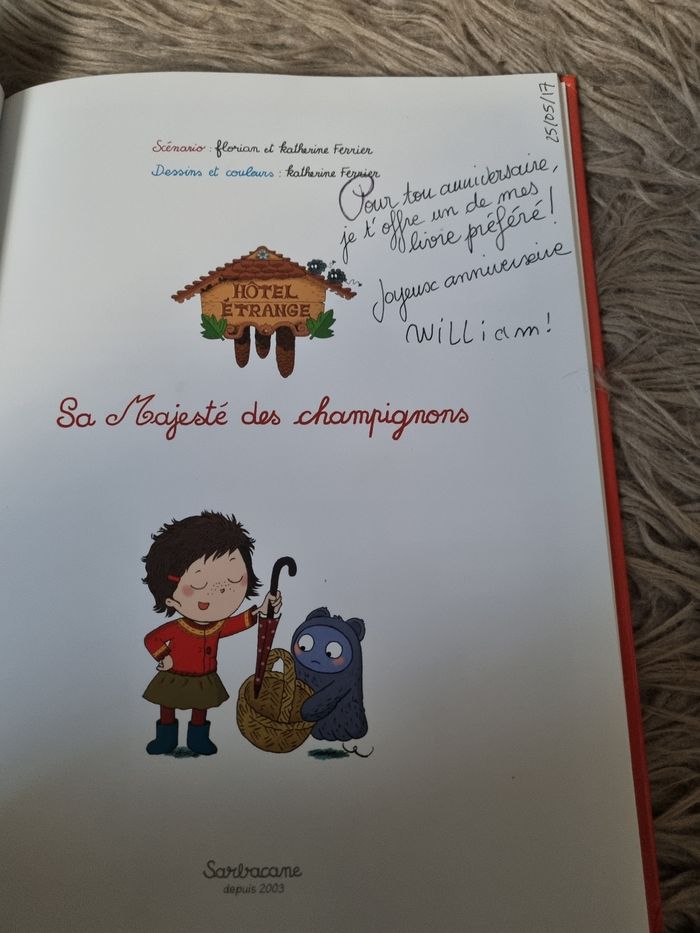 25/05/17
Scénario : florian et katherine Ferrier
Dessins et couleurs : katherine Ferrier
Pour ton anniversaire,
je t'offre un de mes
livre préféré !
Joyeux anniversaire
William !
HÔTEL
ÉTRANGE
Sa Majesté des champignons
Sarbacane
depuis 2003